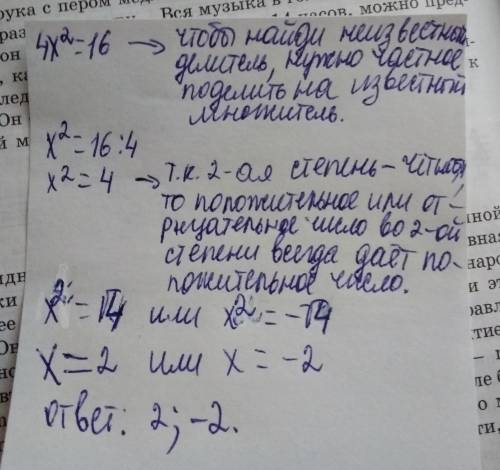 рука с пером
Вся музыка в
часов, можно пред-
4x²=16 → чтобы найди неизвестный
делитель, нужно частное
поделить на известный
множитель.
x²=16:4
x²=4 → т.к. 2-ая степень – четная,
то положительное или от-
рицательное число во 2-ой
степени всегда даёт по-
ложительное число.
x²=√4 или x²=-√4
x=2 или x=-2
ответ: 2; -2.